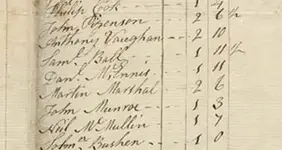 Philip Cook - - 1
John Rogenson - - 2 6 ½
Anthony Vaughan - - 2 10
Saml. Ball - - 1 11 ½
Danl. McInnes - - 1 11
Martin Marshal - - 2 6
John Munroe - - - 1 3
Neil McMullin - - 1 7
John Bushen - - 1 0